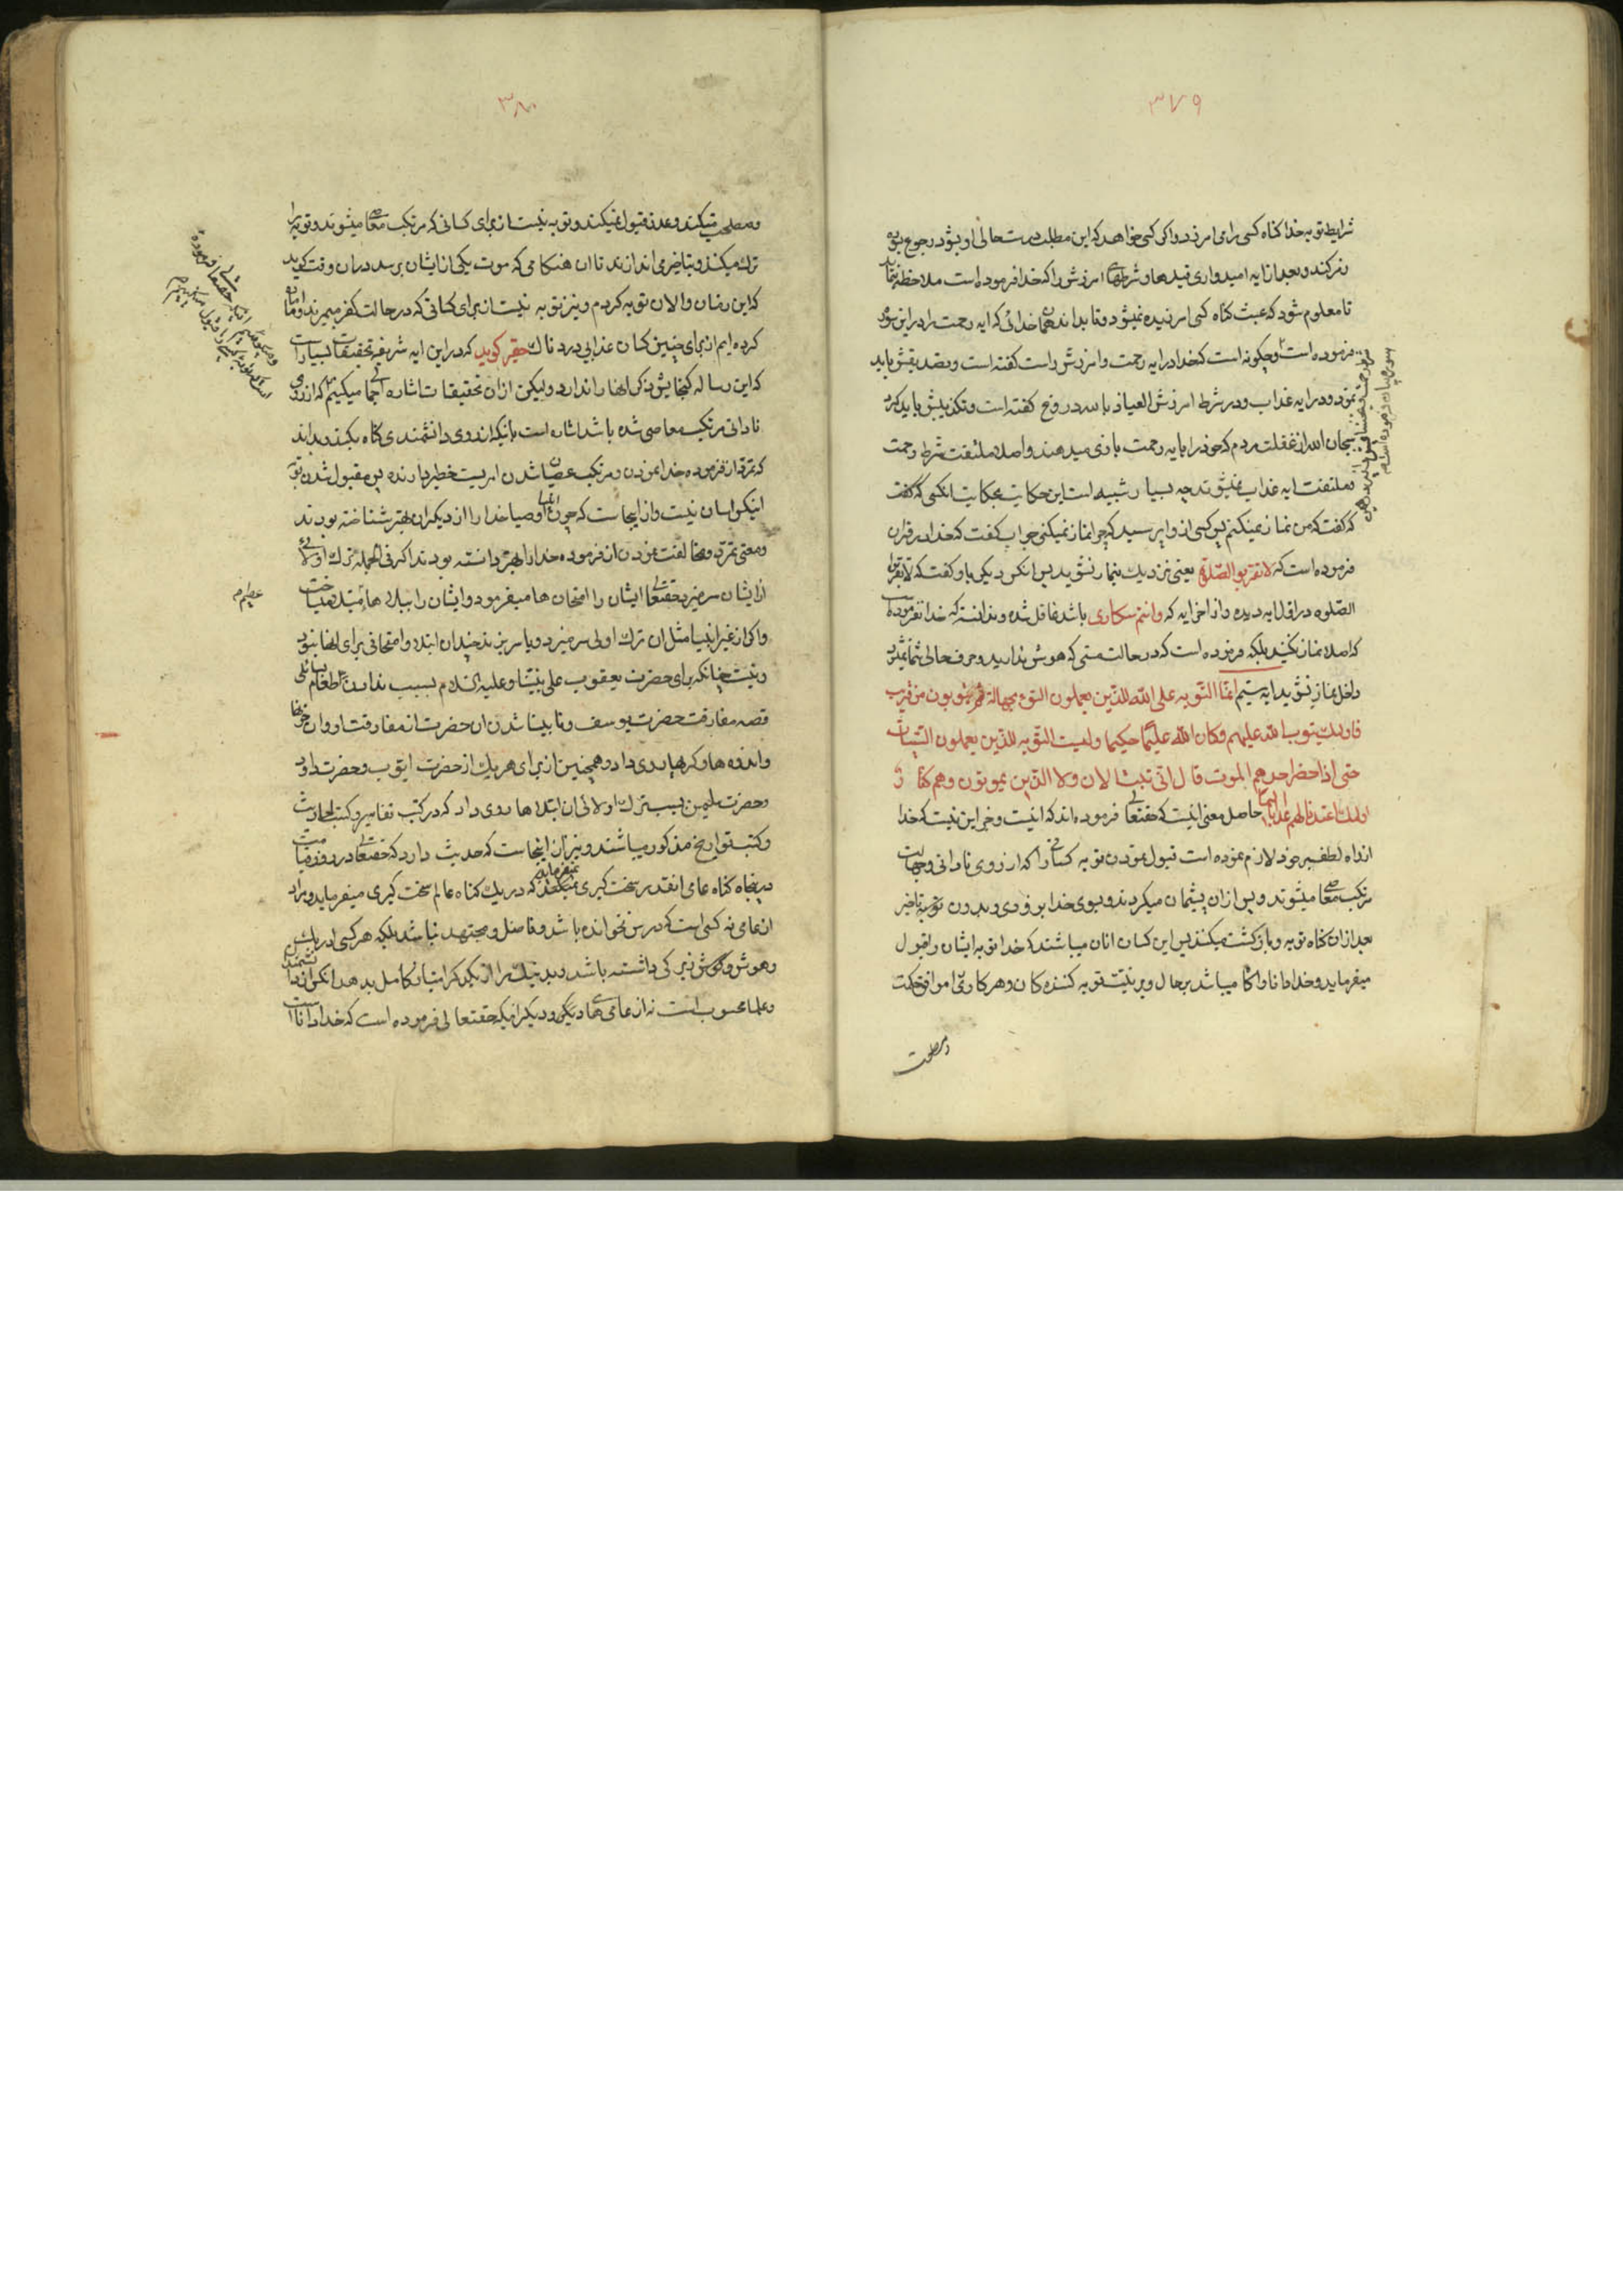 ٣٧٩
شرایط توبه خدا کناه کسی را می امرزد و اکر کسی خواهد که این مطلب درست حالی او بشود رجوع بوی
کند و بعد از ایه امیدواری قیدها و شرطهای امرزش را که خدا فرموده است ملاحظه نماید
تا معلوم شود که عبث کناه کسی امرزیده نمیشود و تا بداند همان خدائی که ایه رحمت را در این سوره
فرموده است و چکونه است که خدا در ایه رحمت و امرزش راست کفته است و تصدیقش باید
نمود و در ایه عذاب و در شرط امرزش العیاذ بالله دروغ کفته است و تکذیبش باید کرد
سبحان الله از غفلت مردم که خود را بایه رحمت بازی میدهند و اصلا ملتفت شرط رحمت
و ملتفت ایه عذاب نمیشوند چه بسیار شبیه است این حکایت بحکایت انکسی که کفت
که کفت که من نماز نمیکنم پس کسی از او پرسید که چرا نماز نمیکنی جواب کفت که خدا در قران
فرموده است که لا تقربوا الصلوة یعنی نزدیک بنماز نشوید پس انکس دیکر باو کفت که لا تقربوا
الصلوه در اول ایه دیده و از اخر ایه که وانتم سکاری باشد غافل شده و ندانسته که خدا نفرموده است
که اصلا نماز نکنید بلکه فرموده است که در حالت مستی که هوش ندارید و حرف حالی شما نمیشود
داخل نماز نشوید ایه ستیم انما التوبه علی الله للذین یعملون السوء بجهالة ثم یتوبون من قریب
فاولئک یتوب الله علیهم وکان الله علیما حکیما ولیست التوبه للذین یعملون السیئات
حتی اذا حضر احدهم الموت قال انی تبت الان ولا الذین یموتون وهم کفار
اولئک اعتدنا لهم عذابا الیما حاصل معنی اینست که حقتعالی فرموده اند که اینست و جز این نیست که خدا
از راه لطف بر خود لازم نموده است قبول نمودن توبه کسانی را که از روی نادانی و جهالت
مرتکب معاصی میشوند و پس از ان پشیمان میکردند و بسوی خدا بزودی و بدون تاخیر
بعد از ان کناه توبه و بازکشت میکنند پس این کسان انان میباشند که خدا توبه ایشان را قبول
میفرماید و خدا دانا و اکاه میباشد بر حال و بر نیت توبه کننده کان و هر کاری را موافق حکمت
و مصلحت
٣٨٠
و مصلحت میکند و عذر قبول نمیکند و توبه نیست از برای کسانی که مرتکب معاصی میشوند و توبه را
ترک میکنند و بتاخیر می اندازند تا ان هنکامی که موت یکی از ایشان برسد در ان وقت کوید
که این زمان و الان توبه کردم و نیز توبه نیست از برای کسانی که در حالت کفر میمیرند و اماده
کرده ایم از برای چنین کسان عذابی دردناک حقیر کوید که در این ایه شریفه تحقیقات بسیار است
که این رساله کنجایش ذکر انها را ندارد و لیکن از ان تحقیقات اشاره اجمالی میکنیم که از روی
نادانی مرتکب معاصی شده باشد اشاره است بانکه از روی دانشمندی کناه بکند و بداند
که تمرد از فرموده خدا نمودن و مرتکب عصیان شدن امریست خطیر دارنده پس مقبول شدن توبه
اینکس اسان نیست و از اینجاست که چون انبیا و اوصیا خدا را از دیکران بهتر شناخته بودند
و معنی تمرد و مخالفت نمودن از فرموده خدا را بهتر دانسته بودند اکر فی الجمله ترک اولائی
از ایشان سر میزد حقتعالی ایشان را امتحان ها میفرمود و ایشان را ببلاها مبتلا میساخت
و اکر از غیر انبیا مثل ان ترک اولی سر میزد و یا سر بزند چندان ابتلا و امتحانی برای انها نبود
و نیست چنانکه برای حضرت یعقوب علی نبینا و علیه السلام بسبب ندادن طعام بسائلی
قصه مفارقت حضرت یوسف و نابینا شدن ان حضرت از مفارقت او و ان حزنها
و اندوه ها و کریها روی داد و همچنین از برای هر یک از حضرت ایوب و حضرت داود
و حضرت سلیمن بسبب ترک اولائی ان ابتلاها روی داد که در کتب تفاسیر و کتب احادیث
و کتب تواریخ مذکور میباشند و نیز از اینجاست که حدیث دارد که حقتعالی در روز قیامت
در پنجاه کناه عامی انقدر سخت کیری نمیفرماید که در یک کناه عالم سخت کیری میفرماید و مراد
از عامی نه کسی است که درس نخوانده باشد و فاضل و مجتهد نباشد بلکه هر کسی ادراکش
و هوش و کوش زیرکی داشته باشد و بد و نیک را از یکدیکر امتیاز کامل بدهد انکس از دانشمندان
و علما محسوب است نه از عامی ها و دیکر انکه حقتعالی فرموده است که خدا دانا است
عظیم م